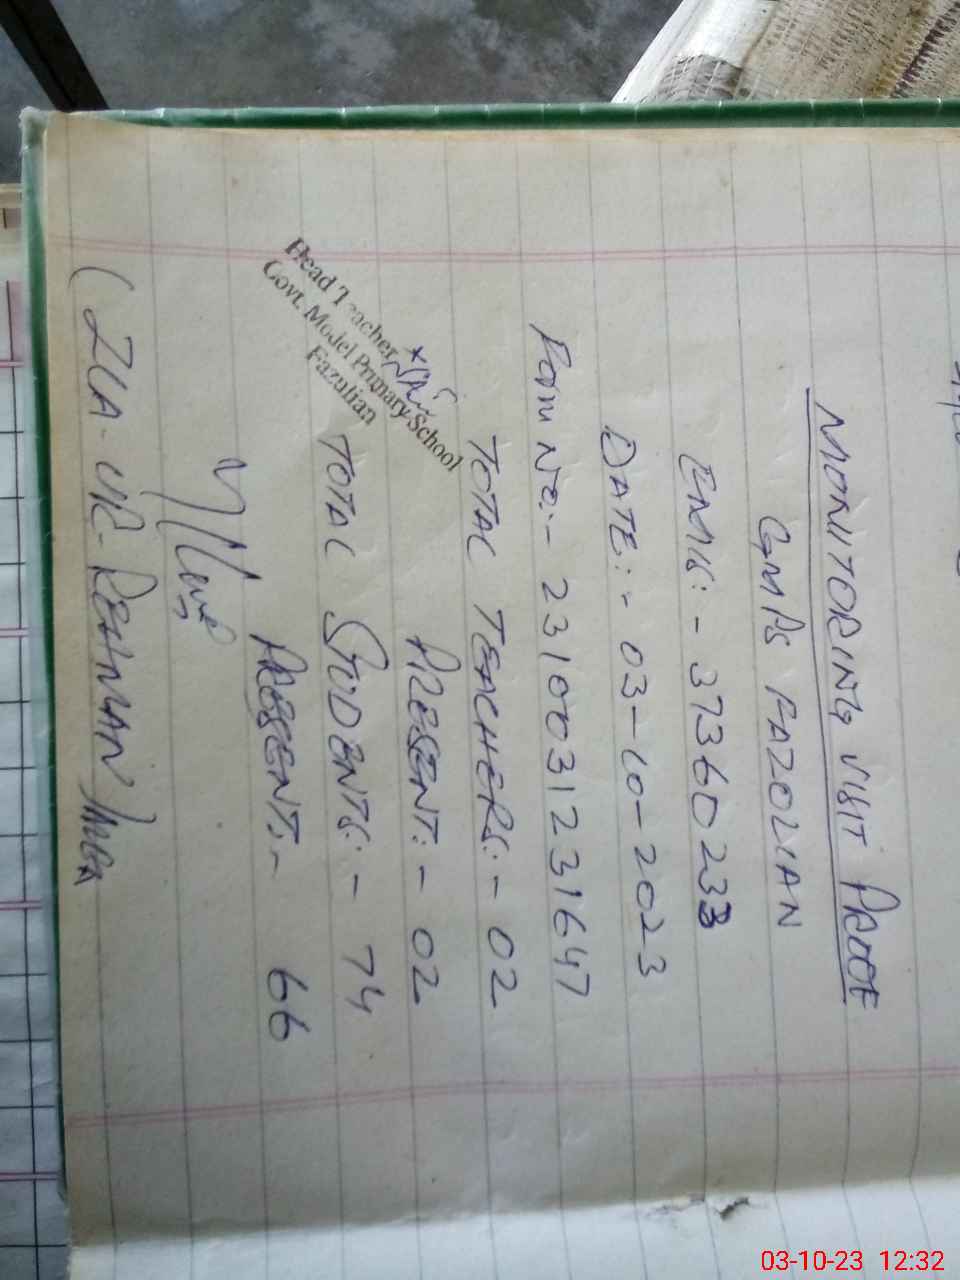 MONITORING VISIT PROOF
GMPS FAZOLIAN
EMIS:- 37360233
DATE:- 03-10-2023
FORM No:- 2310031231647
TOTAL TEACHERS:- 02
PRESENT:- 02
TOTAL STUDENTS:- 74
PRESENT:- 66
Head Teacher
Govt. Model Primary School
Fazulian
(ZIA-UR-REHMAN)
03-10-23 12:32